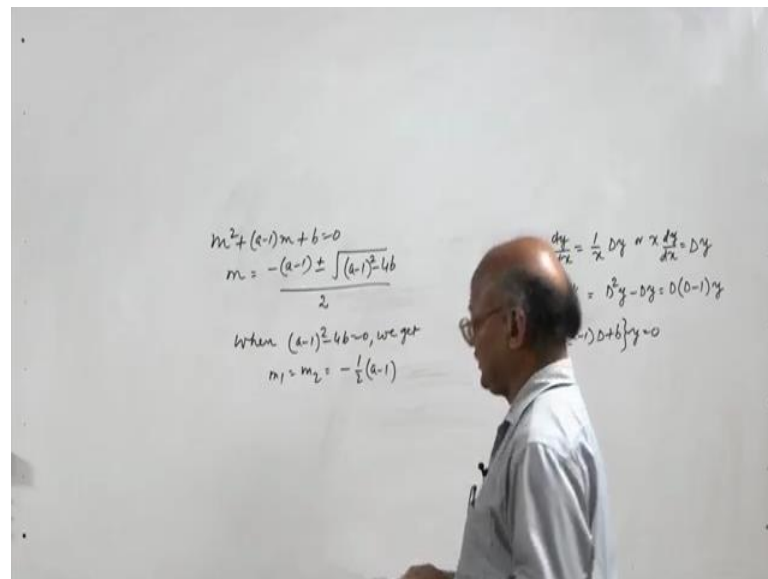 m²+(a-1)m+b=0
m = -(a-1) ± √(a-1)²-4b
2
When (a-1)²-4b=0, we get
m₁ = m₂ = -1/2(a-1)
dy/dx = 1/x Dy or x dy/dx = Dy
= D²y-Dy = D(D-1)y
-1)D+b}y=0